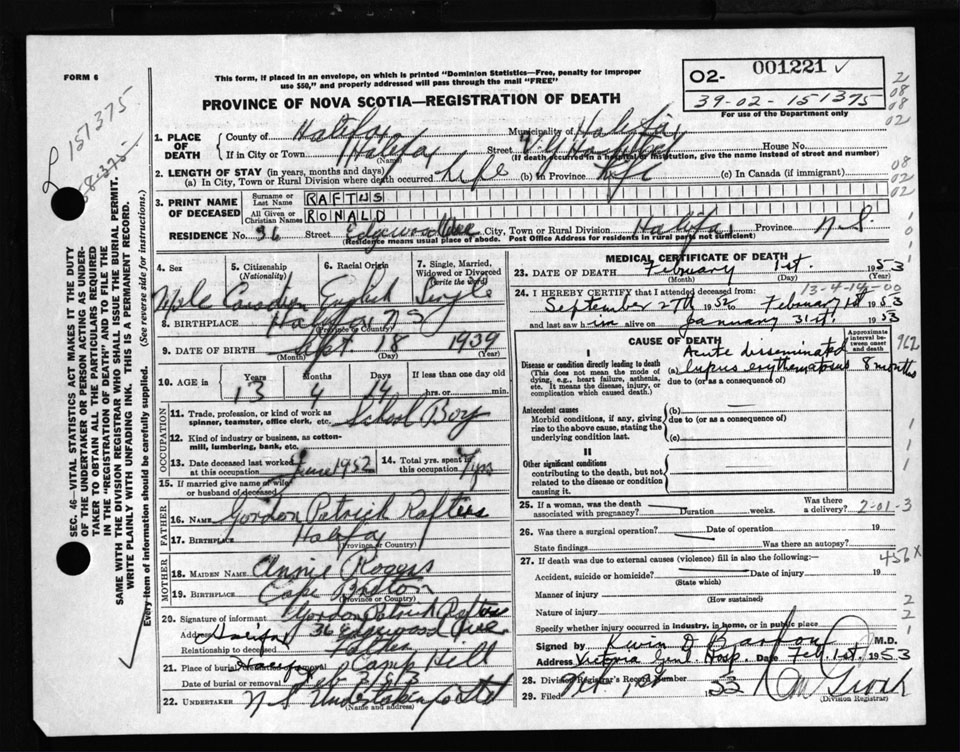 FORM 6
This form, if placed in an envelope, on which is printed "Dominion Statistics—Free, penalty for improper
use $50," and properly addressed will pass through the mail "FREE"
PROVINCE OF NOVA SCOTIA—REGISTRATION OF DEATH
O2- 001221
39-02-151375
For use of the Department only
2 08 08 02
L 151375
SEC. 46—VITAL STATISTICS ACT MAKES IT THE DUTY
OF THE UNDERTAKER OR PERSON ACTING AS UNDER-
TAKER TO OBTAIN ALL THE PARTICULARS REQUIRED
IN THE "REGISTRATION OF DEATH" AND TO FILE THE
SAME WITH THE DIVISION REGISTRAR WHO SHALL ISSUE THE BURIAL PERMIT.
WRITE PLAINLY WITH UNFADING INK. THIS IS A PERMANENT RECORD.
Every item of information should be carefully supplied. (See reverse side for instructions.)
1. PLACE OF DEATH
County of Halifax Municipality of Halifax
If in City or Town Halifax Street V.G. Hospital House No.
(Name) (If death occurred in a hospital or institution, give the name instead of street and number)
2. LENGTH OF STAY (in years, months and days)
(a) In City, Town or Rural Division where death occurred life (b) In Province life (c) In Canada (if immigrant)
08 02
3. PRINT NAME OF DECEASED
Surname or Last Name RAFTUS
All Given or Christian Names RONALD
RESIDENCE No. 36 Street Edgewood Ave City, Town or Rural Division Halifax Province N.S.
(Residence means usual place of abode. Post Office Address for residents in rural parts not sufficient)
4. Sex 5. Citizenship (Nationality) 6. Racial Origin 7. Single, Married, Widowed or Divorced (write the word)
Male Canadian English Single
8. BIRTHPLACE Halifax N S
(Province or Country)
9. DATE OF BIRTH Sept. 18 1939
(Month) (Day) (Year)
10. AGE in Years Months Days If less than one day
13 4 14 hrs. or min.
OCCUPATION
11. Trade, profession, or kind of work as
spinner, teamster, office clerk, etc. School Boy
12. Kind of industry or business, as cotton-
mill, lumbering, bank, etc.
13. Date deceased last worked at this occupation June 1952 14. Total yrs. spent in this occupation 7 yrs
15. If married give name of wife
or husband of deceased
FATHER
16. NAME Gordon Patrick Raftus
17. BIRTHPLACE Halifax
(Province or Country)
MOTHER
18. MAIDEN NAME Annie Rogers
19. BIRTHPLACE Cape Breton
(Province or Country)
20. Signature of informant Gordon Patrick Raftus
Address Halifax 36 Edgewood Ave
Relationship to deceased Father
21. Place of burial, cremation or removal Halifax Camp Hill
Date of burial or removal Feb 3/53
22. UNDERTAKER N S Undertaking Co Ltd
(Name and address)
MEDICAL CERTIFICATE OF DEATH
23. DATE OF DEATH February 1st. 1953
(Month) (Day) (Year)
13-4-14-00
24. I HEREBY CERTIFY that I attended deceased from:
September 27th 1952 to February 1st 1953
and last saw him alive on January 31st. 1953
CAUSE OF DEATH
Approximate interval between onset and death
I
Disease or condition directly leading to death
(This does not mean the mode of
dying, e.g., heart failure, asthenia,
etc. It means the disease, injury, or
complication which caused death.)
(a) Acute disseminated lupus erythematosus 8 months
due to (or as a consequence of)
962
Antecedent causes
Morbid conditions, if any, giving
rise to the above cause, stating the
underlying condition last.
(b)
due to (or as a consequence of)
(c)
II
Other significant conditions
contributing to the death, but not
related to the disease or condition
causing it.
25. If a woman, was the death associated with pregnancy? Duration weeks. Was there a delivery?
2-01-3
26. Was there a surgical operation? Date of operation 19
State findings Was there an autopsy?
27. If death was due to external causes (violence) fill in also the following:—
456 X
Accident, suicide or homicide? Date of injury 19
(State which)
Manner of injury
(How sustained)
Nature of injury
Specify whether injury occurred in industry, in home, or in public place
Signed by M.D.
Address Victoria Genl. Hosp. Date Feb 1st. 1953
28. Division Registrar's Record Number
29. Filed 53
(Division Registrar)